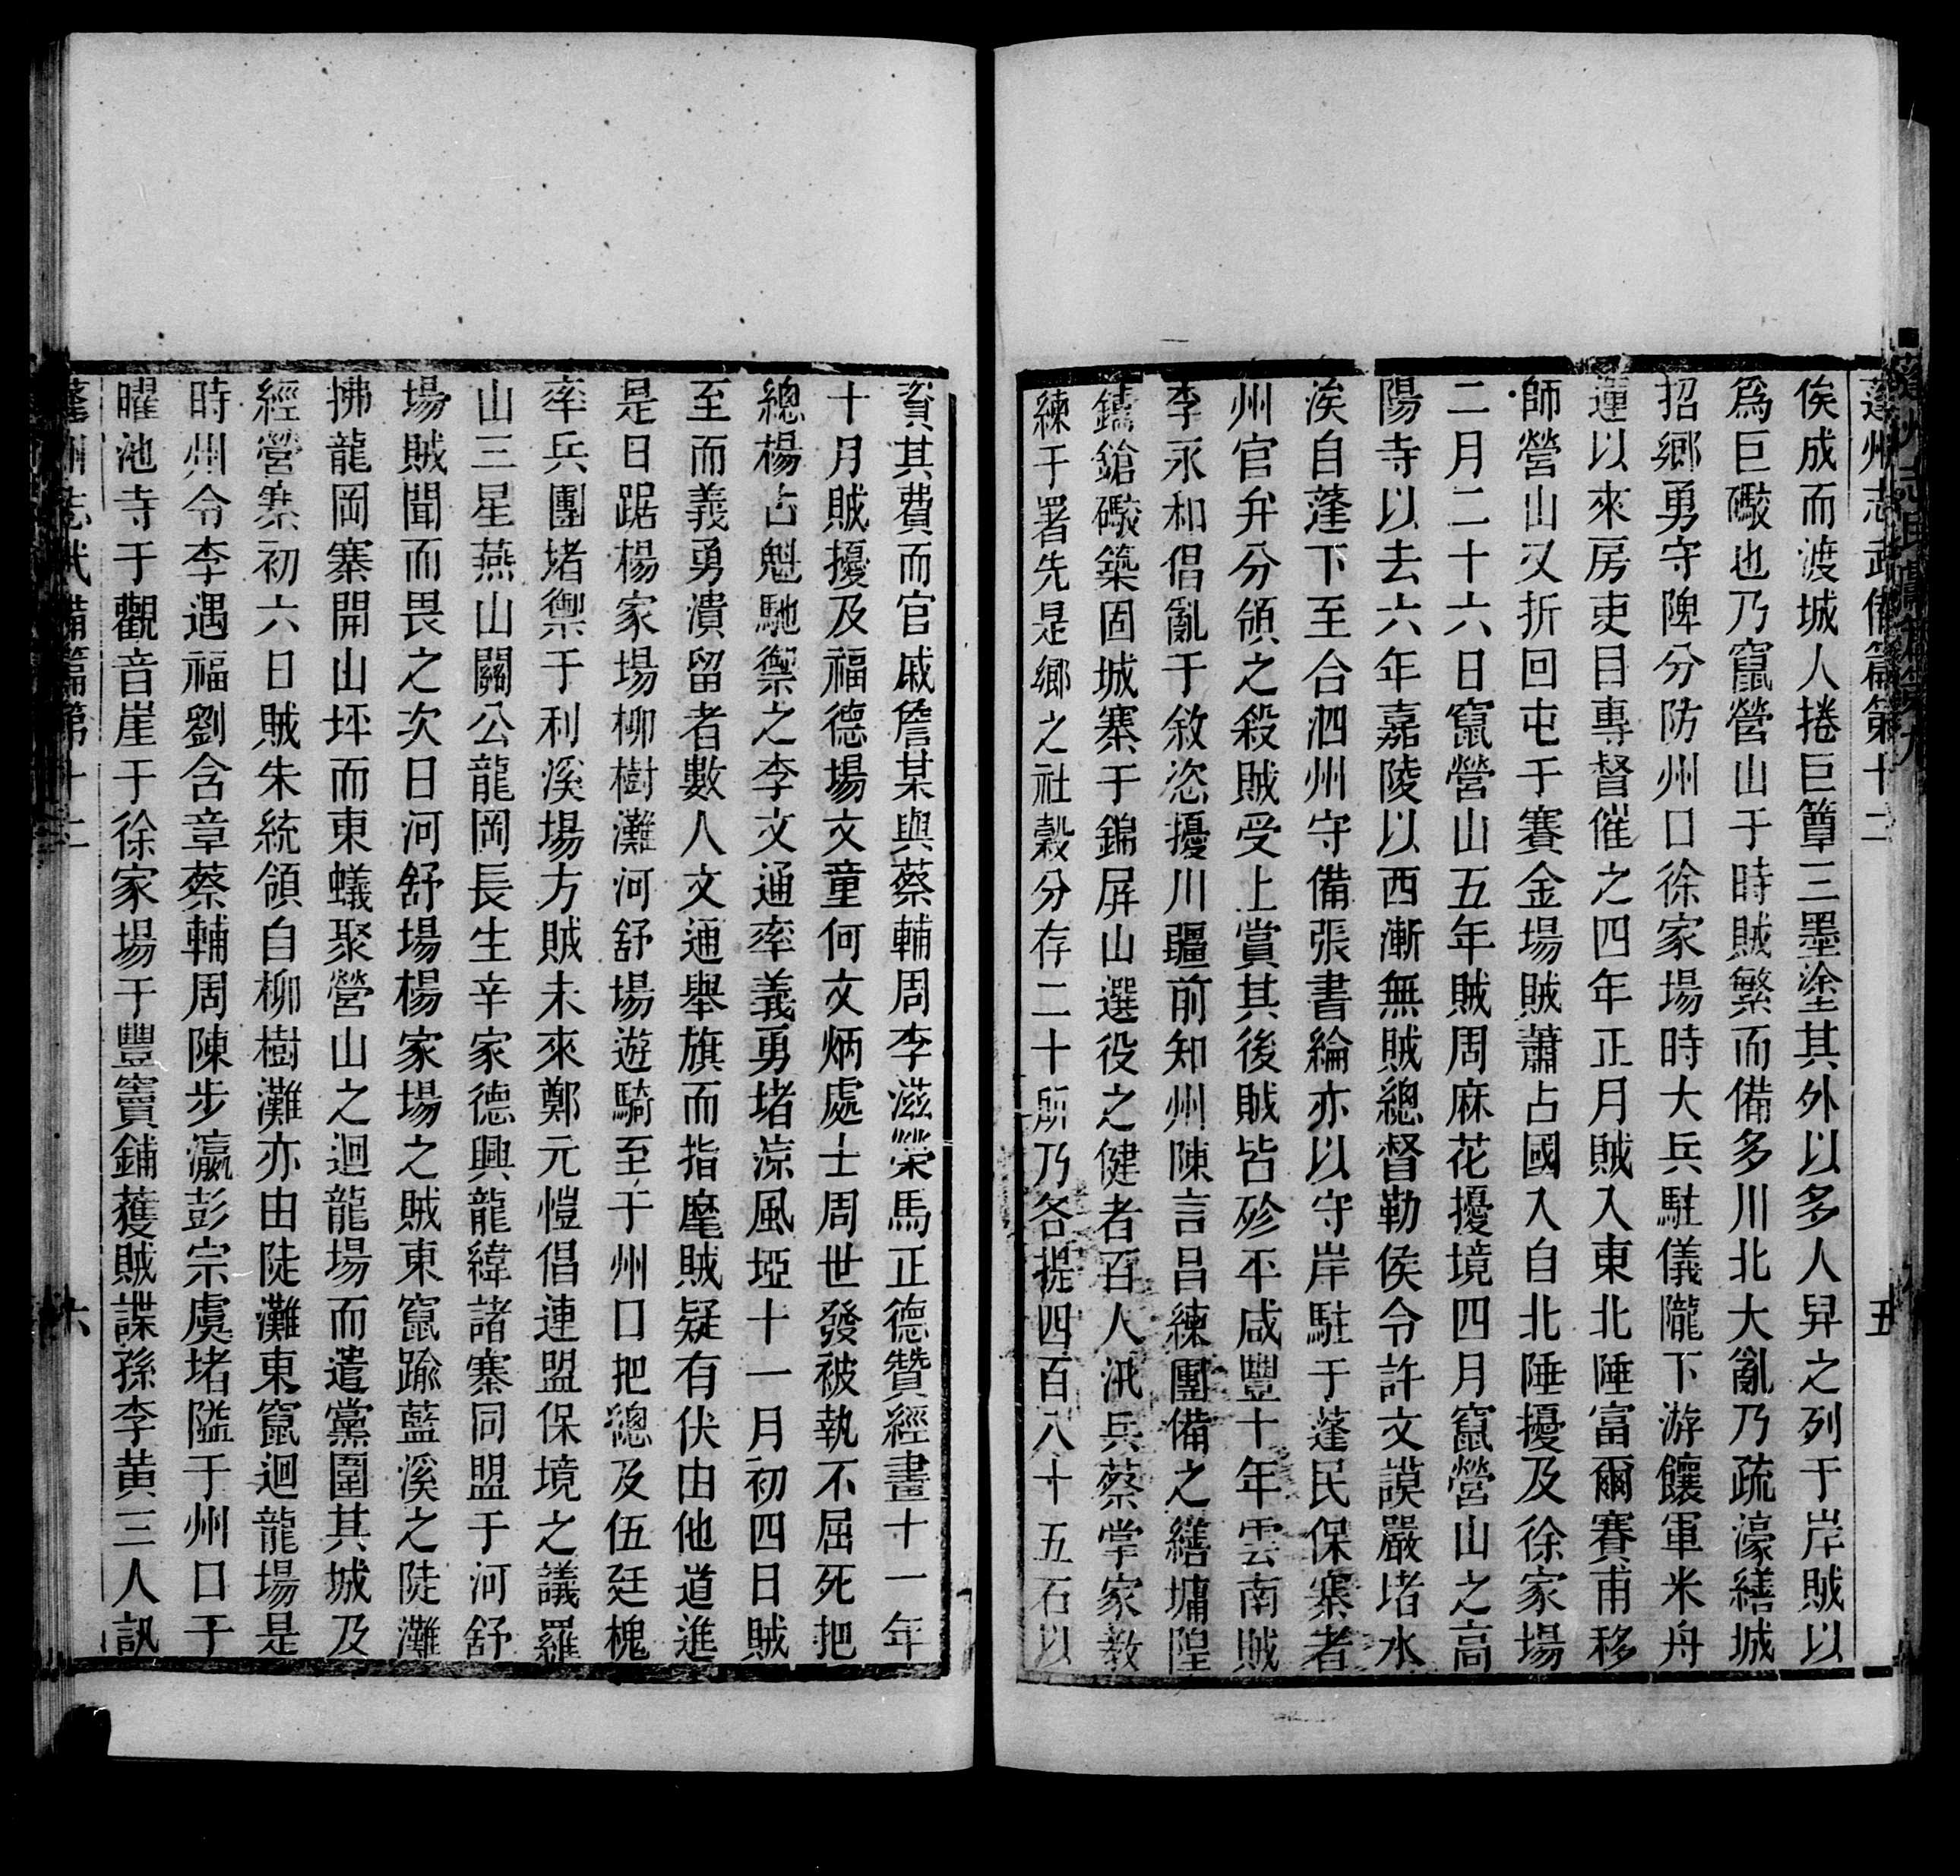 蓬州志武備篇第十二 五
俟成而渡城人捲巨簟三墨塗其外以多人舁之列于岸賊以
爲巨礮也乃竄營山于時賊繁而備多川北大亂乃疏濠繕城
招鄉勇守陴分防州口徐家場時大兵駐儀隴下游饟軍米舟
運以來房吏目專督催之四年正月賊入東北陲富爾賽甫移
師營山又折回屯于賽金場賊蕭占國入自北陲擾及徐家場
二月二十六日竄營山五年賊周麻花擾境四月竄營山之高
陽寺以去六年嘉陵以西漸無賊總督勒侯令許文謨嚴堵水
涘自蓬下至合泗州守備張書綸亦以守岸駐于蓬民保寨者
州官弁分頒之殺賊受上賞其後賊皆殄平咸豐十年雲南賊
李永和倡亂于敘恣擾川疆前知州陳言昌練團備之繕墉隍
鑄鎗礮築固城寨于錦屏山選役之健者百人汛兵蔡掌家教
練于署先是鄉之社穀分存二十所乃各提四百八十五石以
資其費而官戚詹某與蔡輔周李滋榮馬正德贊經畫十一年
十月賊擾及福德場文童何文炳處士周世發被執不屈死把
總楊占魁馳禦之李文通率義勇堵涼風埡十一月初四日賊
至而義勇潰留者數人文通舉旗而指麾賊疑有伏由他道進
是日踞楊家場柳樹灘河舒場遊騎至于州口把總及伍廷槐
率兵團堵禦于利溪場方賊未來鄭元愷倡連盟保境之議羅
山三星燕山關公龍岡長生辛家德興龍緯諸寨同盟于河舒
場賊聞而畏之次日河舒場楊家場之賊東竄踰藍溪之陡灘
拂龍岡寨開山坪而東蟻聚營山之迴龍場而遣黨圍其城及
經營寨初六日賊朱統領自柳樹灘亦由陡灘東竄迴龍場是
時州令李遇福劉含章蔡輔周陳步瀛彭宗虞堵隘于州口于
曜池寺于觀音崖于徐家場于豐竇鋪獲賊諜孫李黃三人訊
蓬州志武備篇第十二 六